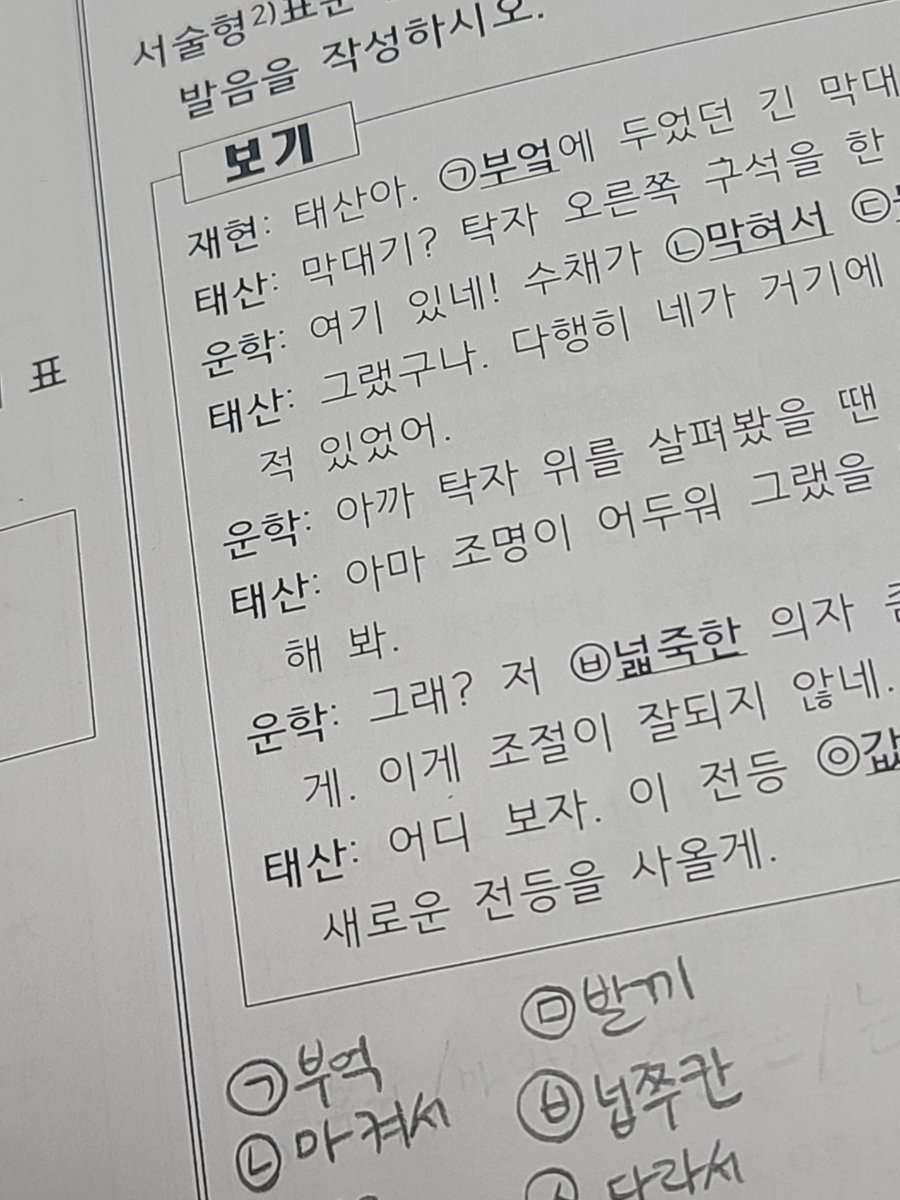 서술형2)표준
발음을 작성하시오.
보기
재현: 태산아. ㉠부엌에 두었던 긴 막대
태산: 막대기? 탁자 오른쪽 구석을 한
운학: 여기 있네! 수채가 ㉡막혀서 ㉢
태산: 그랬구나. 다행히 네가 거기에
적 있었어.
운학: 아까 탁자 위를 살펴봤을 땐
태산: 아마 조명이 어두워 그랬을
해 봐.
운학: 그래? 저 ㉥넓죽한 의자
게. 이게 조절이 잘되지 않네.
태산: 어디 보자. 이 전등 ◎값
새로운 전등을 사올게.
표
㉠부억
㉡마켜서
㉤발끼
㉥넙쭈칸
㉦다라서